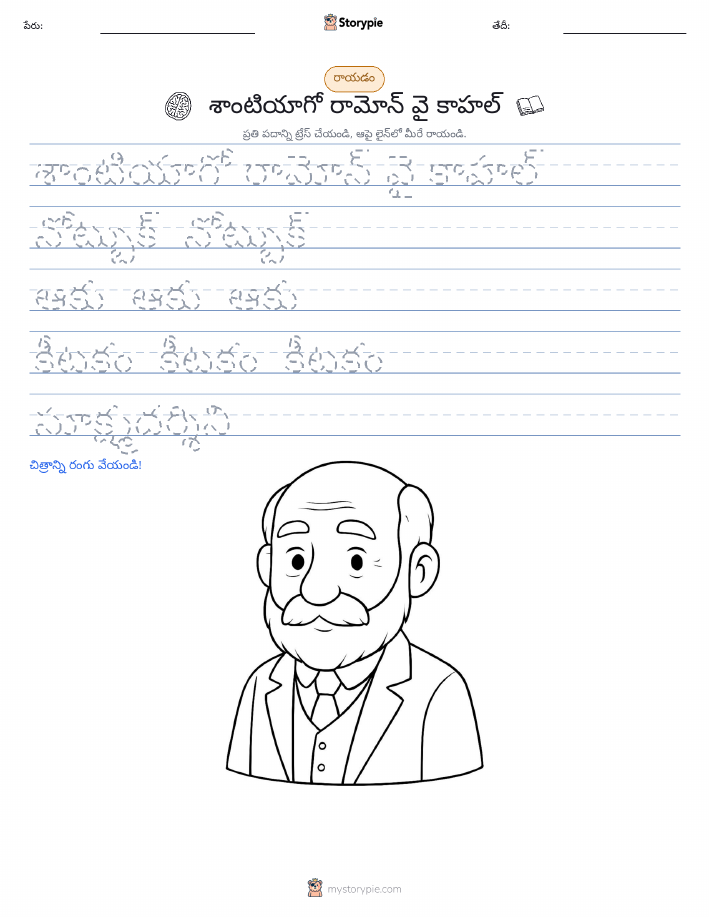 పేరు:
Storypie
తేదీ:
రాయడం
శాంటియాగో రామోన్ వై కాహల్
ప్రతి పదాన్ని ట్రేస్ చేయండి, ఆపై లైన్‌లో మీరే రాయండి.
శాంటియాగో రామోన్ వై కాహల్
నోట్బుక్ నోట్బుక్
ఆకు ఆకు ఆకు
కీటకం కీటకం కీటకం
సూక్ష్మదర్శిని
చిత్రాన్ని రంగు వేయండి!
mystorypie.com